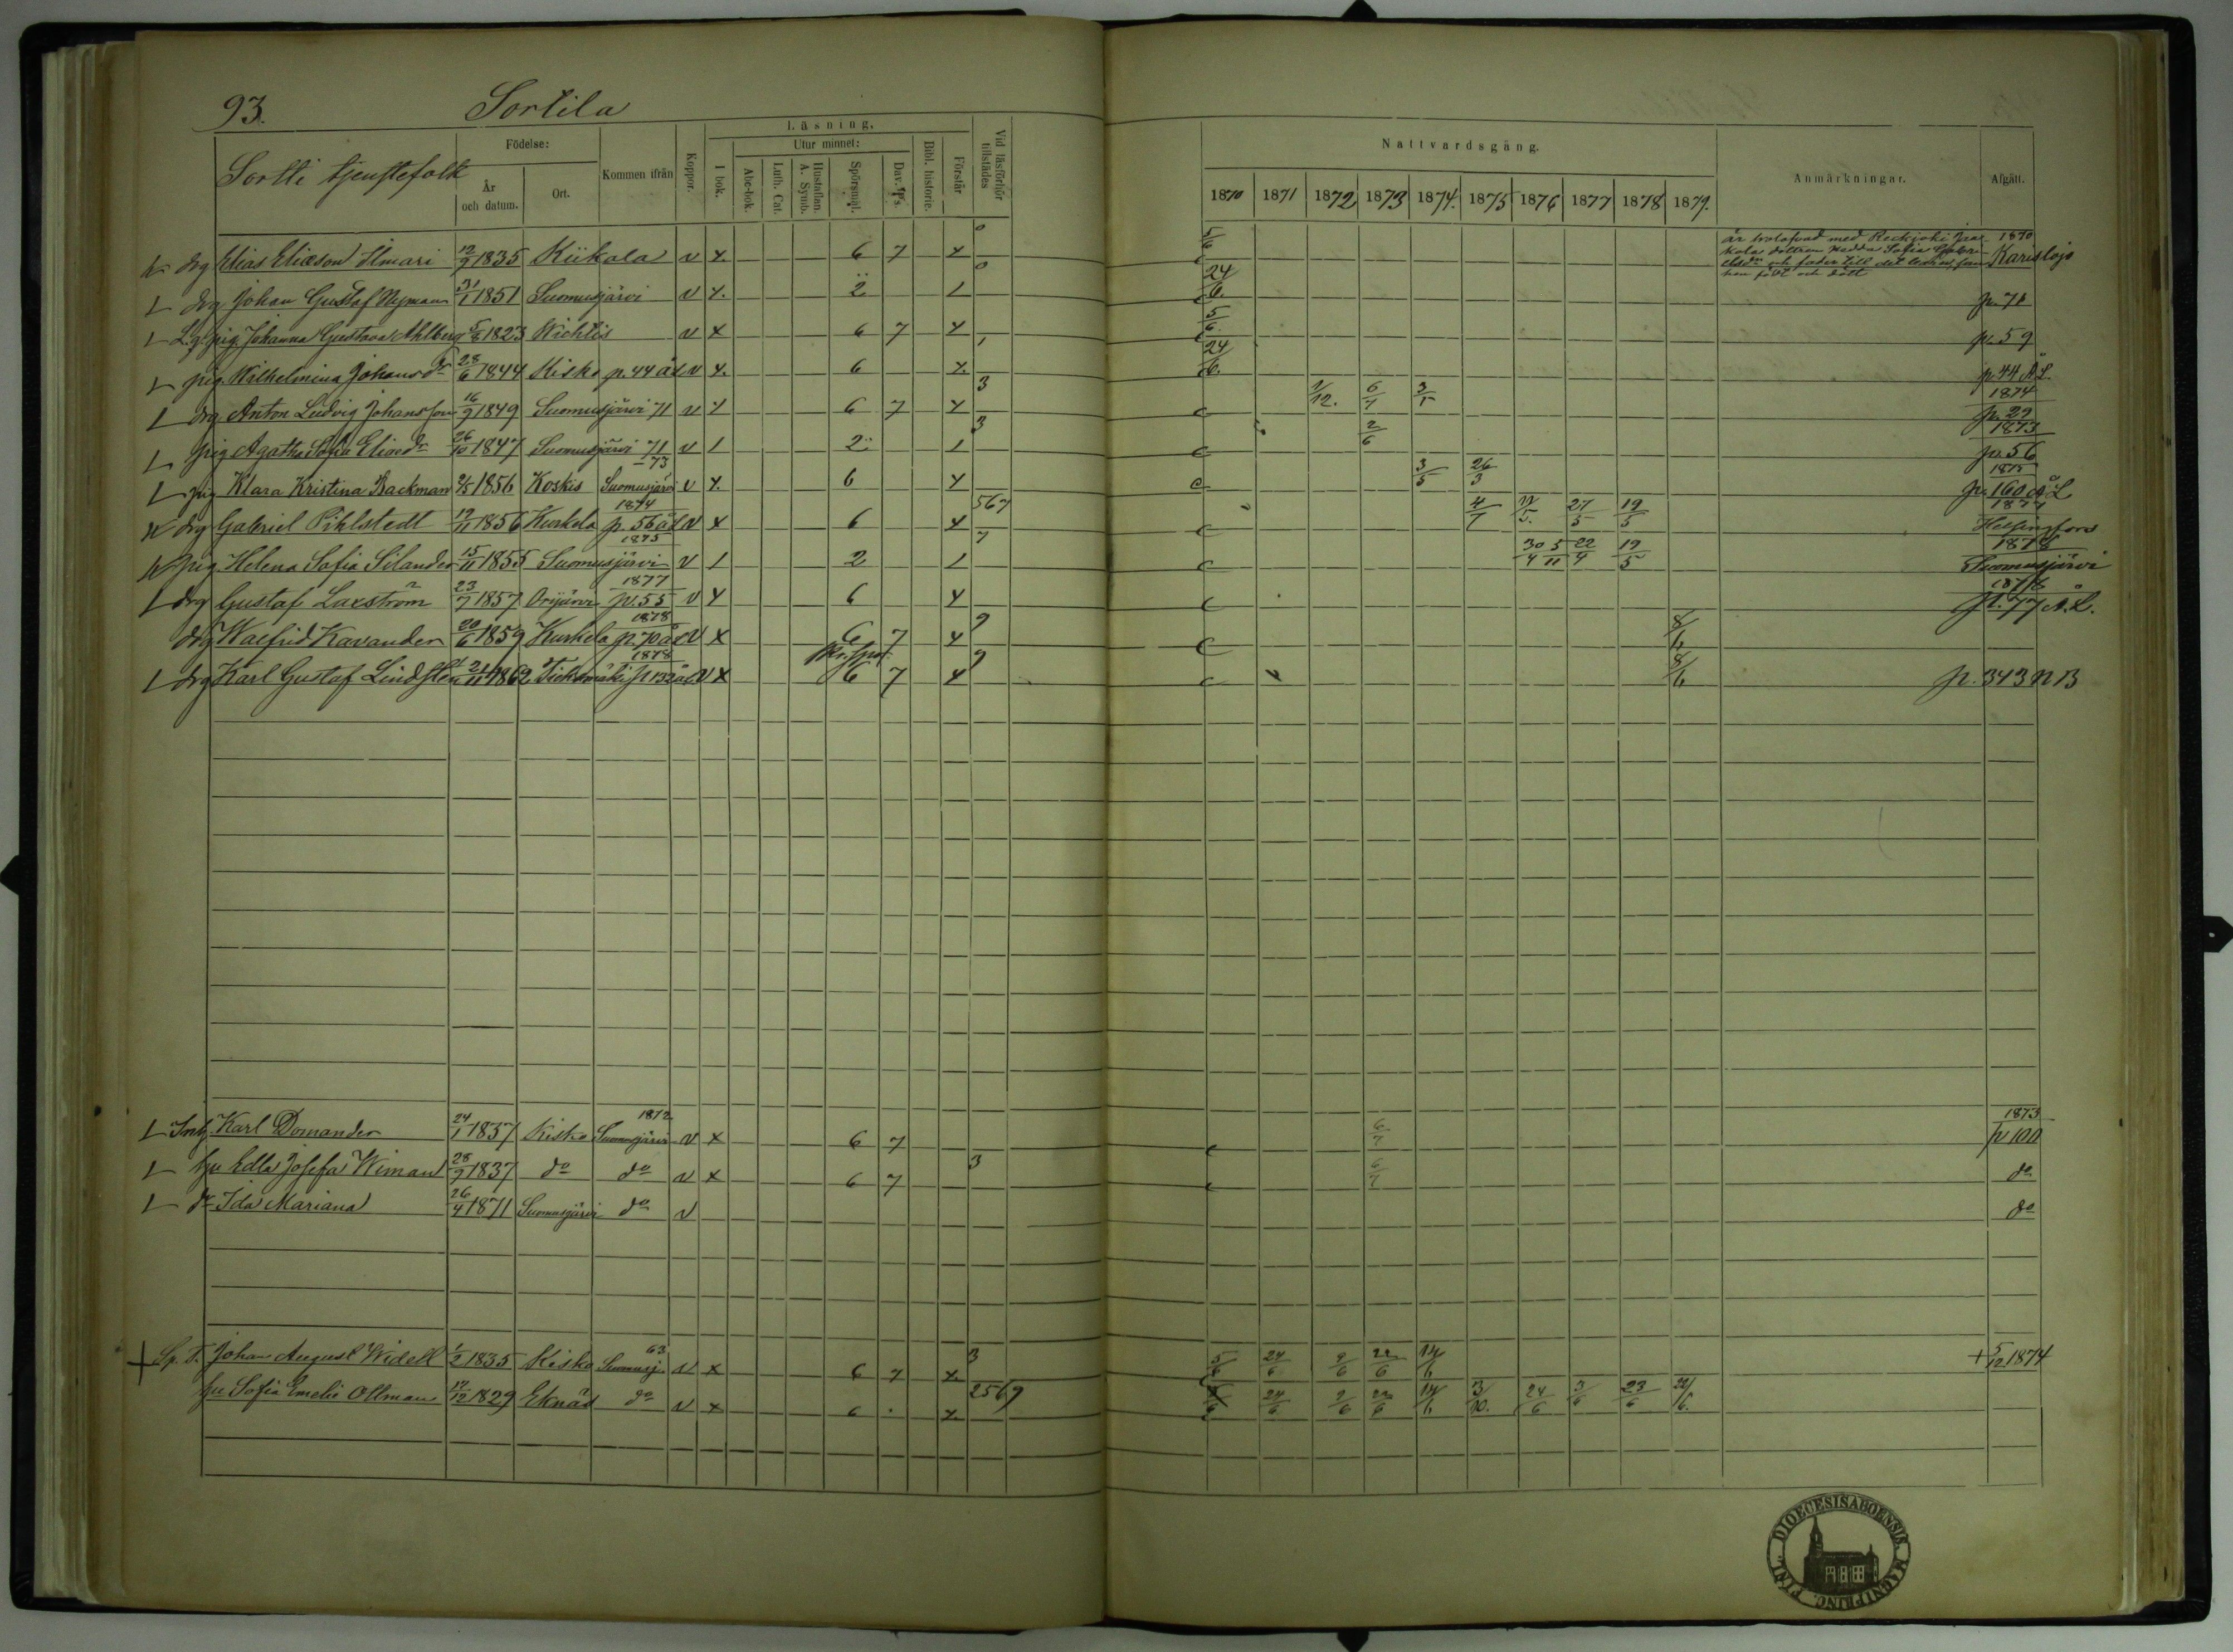 93. Sortila
Sortti tjenstefolk
Födelse:
År och datum.
Ort.
Kommen ifrån
Koppor.
Läsning.
I bok.
Utur minnet:
Abc-bok.
Luth. Cat.
Hustaflan. A. Symb.
Spörsmål.
Dav. Ps.
Bibl. historie.
Förstår
Vid läsförhör tillstädes
Nattvardsgång.
1870 1871 1872 1873 1874. 1875 1876 1877 1878 1879.
Anmärkningar.
Afgått.
drg Elias Eliasson Ilmari 12/9 1835 Kiikala v x 6 7 x 0 5/6 är trolofvad med 1870 Karislojo
drg Johan Gustaf Nyman 31/1 1851 Suomusjärvi v x. 2 1 0 24/6. p. 71
L.g. pig. Johanna Gustava Ahlberg 5/8 1823 Wichtis v x 6 7 x 5/6 p. 59
pig. Wilhelmina Johansdr 28/6 1844 Kisko p. 44 ÅL v x. 6 x. 24/6. p. 44 ÅL
drg Anton Ludvig Johansson 16/9 1849 Suomusjärvi 71 v x 6 7 x 3 1/12. 6/7 3/5 1874 p. 29
pig Agatha Sofia Eliaedr 26/10 1847 Suomusjärvi 71 v 1 2 1 3 2/6 1873 p. 56
pig Klara Kristina Backman 2/5 1856 Koskis Suomusjärvi 73 v x. 6 x 3/5 26/3 1875 p. 160 ÅL
drg Gabriel Pihlstedt 19/11 1856 Kurkela 1874 p. 56 ÅL v x 6 x 567 4/7 27/5 19/5 1877 Helsingfors
pig. Helena Sofia Silander 15/11 1855 Suomusjärvi 1875 v 1 2 1 7 30/4 5/11 22/4 19/5 1878 Suomusjärvi
drg Gustaf Laxström 23/7 1857 Orijärvi 1877 p. 55 v x 6 x 1878 p. 77 ÅL.
drg Walfrid Kavander 20/6 1859 Kurkela 1878 p. 70 ÅL v x 6 7 x 9 8/6
drg Karl Gustaf Lindstedt 21/11 1862 1878 p 132 ÅL v x 6 7 x 9 8/6 p. 343 NB
Inh. Karl Domander 24/1 1837 Kisko 1872 Suomusjärvi v x 6 7 6/7 1873 p 100
hu Edla Josefa Wiman 28/9 1837 do do v x 6 7 3 6/7 do
dr Ida Mariana 26/4 1871 Suomusjärvi do v do
Sp. T. Johan August Widell 1/2 1835 Kisko 63 Suomusj. v x 6 7 x 3 5/6 24/6 9/6 22/6 14/6 + 5/12 1874
hu Sofia Emelie Ollman 17/12 1829 Eknäs do v x 6 . x 2569 5/6 24/6 9/6 22/6 14/6 3/10. 24/6 3/6 23/6 22/6.
FINL. DIOECESIS ABOENSIS. MAGNI PRINC.